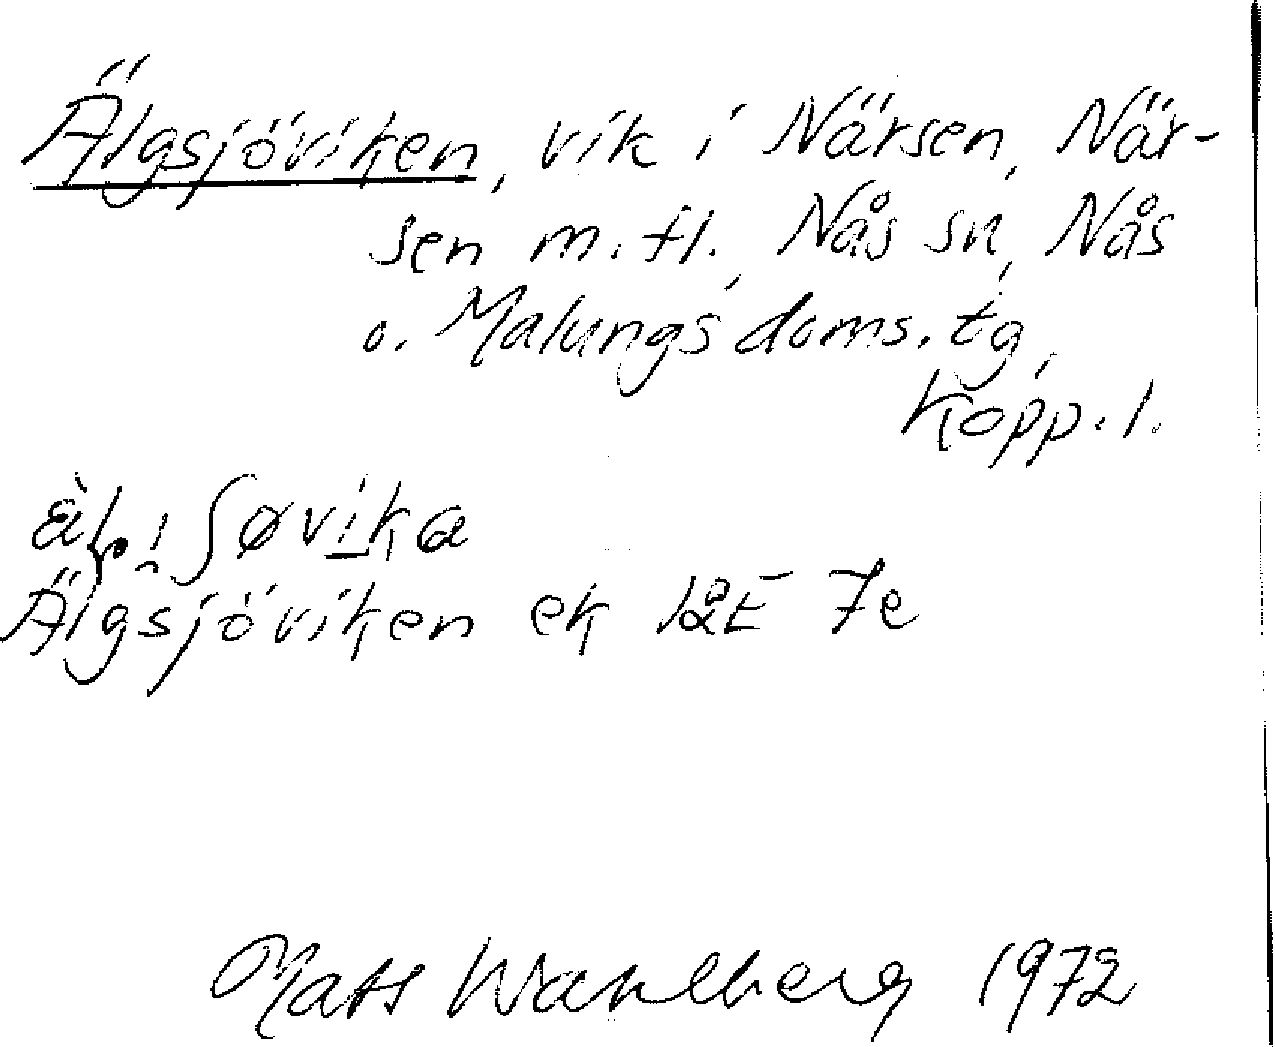 Älgsjöviken, vik i Närsen, När-
sen m.fl., Nås sn, Nås
o. Malungs doms. tg,
Kopp. l.
ʃøvika
Älgsjöviken ek 12E 7e
Mats Wahlberg 1972